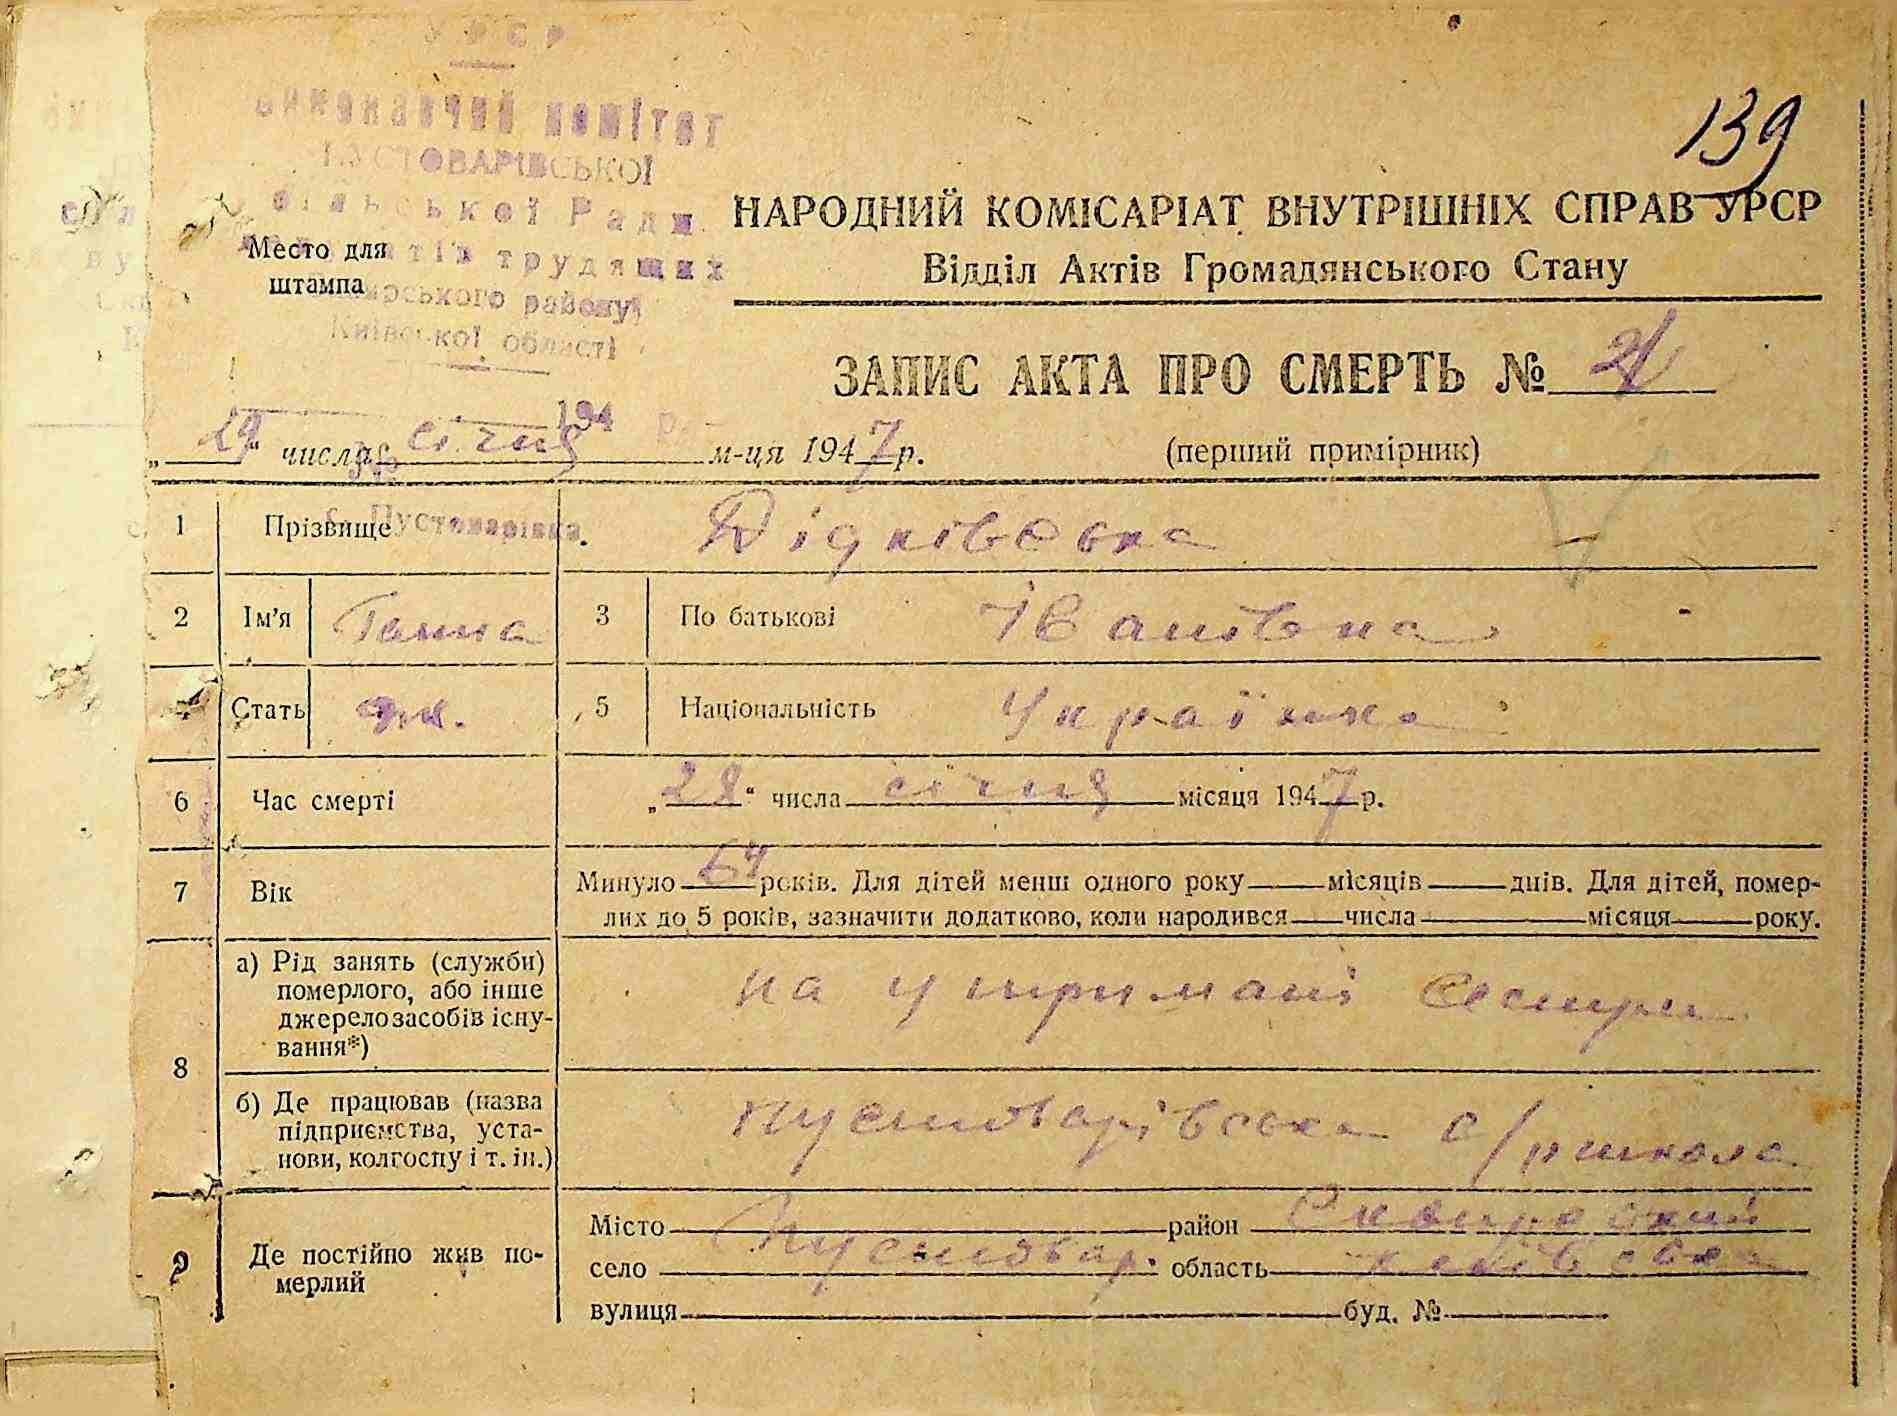 УРСР
Виконавчий комітет
ПУСТОВАРІВСЬКОЇ
сільської Ради
депутатів трудящих
Сквирського району
Київської області
194 р.
с. Пустоварівка
139
Место для
штампа
НАРОДНИЙ КОМІСАРІАТ ВНУТРІШНІХ СПРАВ УРСР
Відділ Актів Громадянського Стану
ЗАПИС АКТА ПРО СМЕРТЬ №
„29“ числа січня м-ця 1947 р.
(перший примірник)
1 Прізвище Дідківська
2 Ім'я Ганна 3 По батькові Іванівна
4 Стать жін. 5 Національність Українка
6 Час смерті „28“ числа січня місяця 1947 р.
7 Вік Минуло 64 років. Для дітей менш одного року місяців днів. Для дітей, помер-
лих до 5 років, зазначити додатково, коли народився числа місяця року.
8
а) Рід занять (служби)
померлого, або інше
джерело засобів існу-
вання*)
на утримані сестри
б) Де працював (назва
підприємства, уста-
нови, колгоспу і т. ін.)
Пустоварівська с/р школа
9 Де постійно жив по-
мерлий
Місто район Сквирський
село Пустовар. область Київська
вулиця буд. №